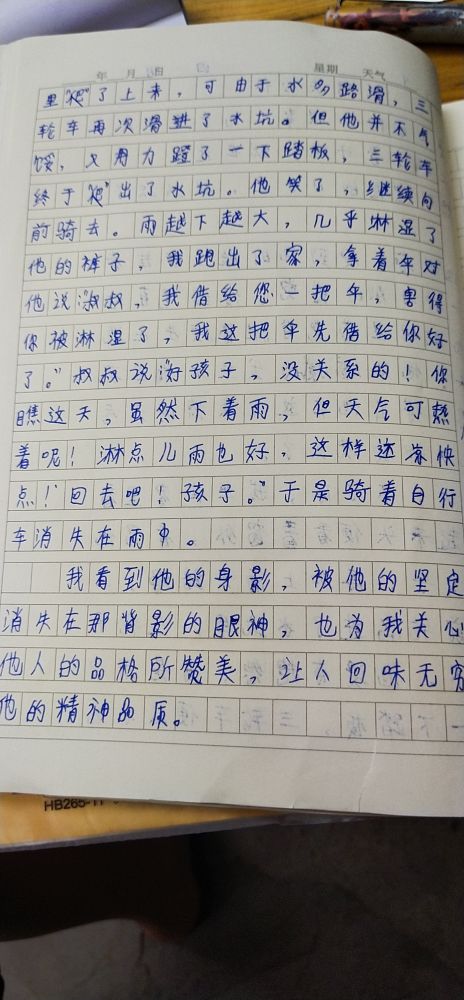 年 月 日 星期 天气
里“爬”了上来，可由于水多路滑，三
轮车再次滑进了水坑。但他并不气
馁，又用力蹬了一下踏板，三轮车
终于“爬”出了水坑。他笑了，继续向
前骑去。雨越下越大，几乎淋湿了
他的裤子，我跑出了家，拿着伞对
他说“叔叔，我借给您一把伞，害得
你被淋湿了，我这把伞先借给你好
了。”叔叔说“好孩子，没关系的！你
瞧这天，虽然下着雨，但天气可热
着呢！淋点儿雨也好，这样还凉快
点！回去吧！孩子。”于是骑着自行
车消失在雨中。
我看到他的身影，被他的坚定
消失在那背影的眼神，也为我关心
他人的品格所赞美，让人回味无穷
他的精神品质。
HB265-11